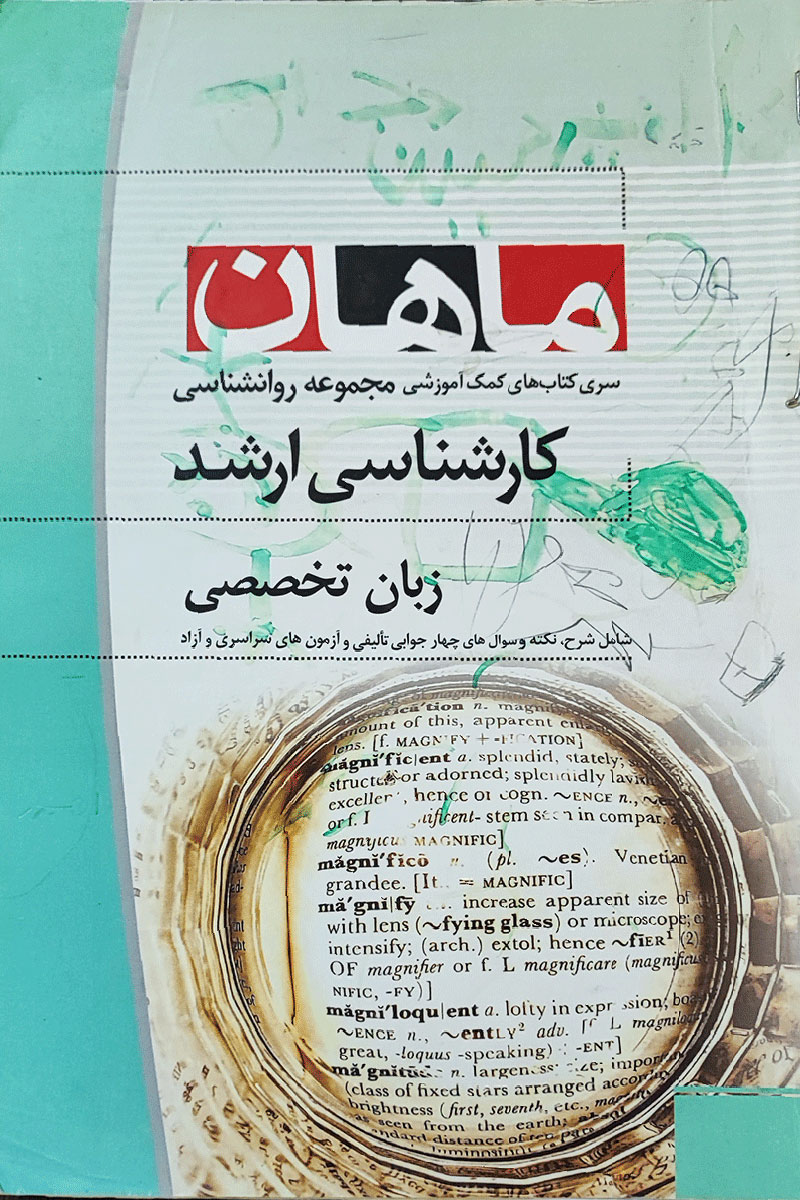 ماهان
سری کتاب‌های کمک آموزشی مجموعه روانشناسی
کارشناسی ارشد
زبان تخصصی
شامل شرح، نکته و سوال های چهار جوابی تألیفی و آزمون های سراسری و آزاد
of magnific
ifica'tion n. magni
amount of this, apparent
lens. [f. MAGNIFY + -FICATION]
măgnĭ'fĭc|ent a. splendid, stately;
structed or adorned; splendidly lavi
excellen, hence or cogn. ~ENCE n.,
or f. ificent- stem seen in compar.
MAGNIFIC]
măgnĭ'fĭcō n. (pl. ~es). Venetian
grandee. [It. = MAGNIFIC]
mă'gnĭ|fȳ increase apparent size of
with lens (~fying glass) or microscope;
intensify; (arch.) extol; hence ~fīER¹ (2)
OF magnifier or f. L magnificare (magnificus
NIFIC, -FY)]
măgnĭ'loqu|ent a. lofty in expression;
~ENCE n., ~entLY² adv. [f. L magnilo
great, -loquus -speaking) -ENT]
mă'gnitūde n. largeness, size; impor
(class of fixed stars arranged accor
brightness (first, seventh, etc.,
as seen from the earth;
distance of ten
luminosi